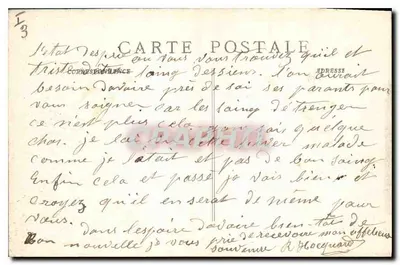 I
3
CARTE POSTALE
CORRESPONDANCE
ADRESSE
l'etat desprie ou vous vous trouvez qu'il et
triste d'etre loing dessiens. l'on aurait
besoin davoire près de soi ses parents pour
vous soigne. car les soing detrenger
ce n'est plus cela quelque
chos. je malade
comme je l'atait et pas de bon soing.
Enfin cela et passé je vais bien et
croyez qu'il en serat de même pour
vous.
dans l'espoire davoire bien-tot de
bon nouvelle je vous prie de recevoire mon
souvenire R. Hocquard